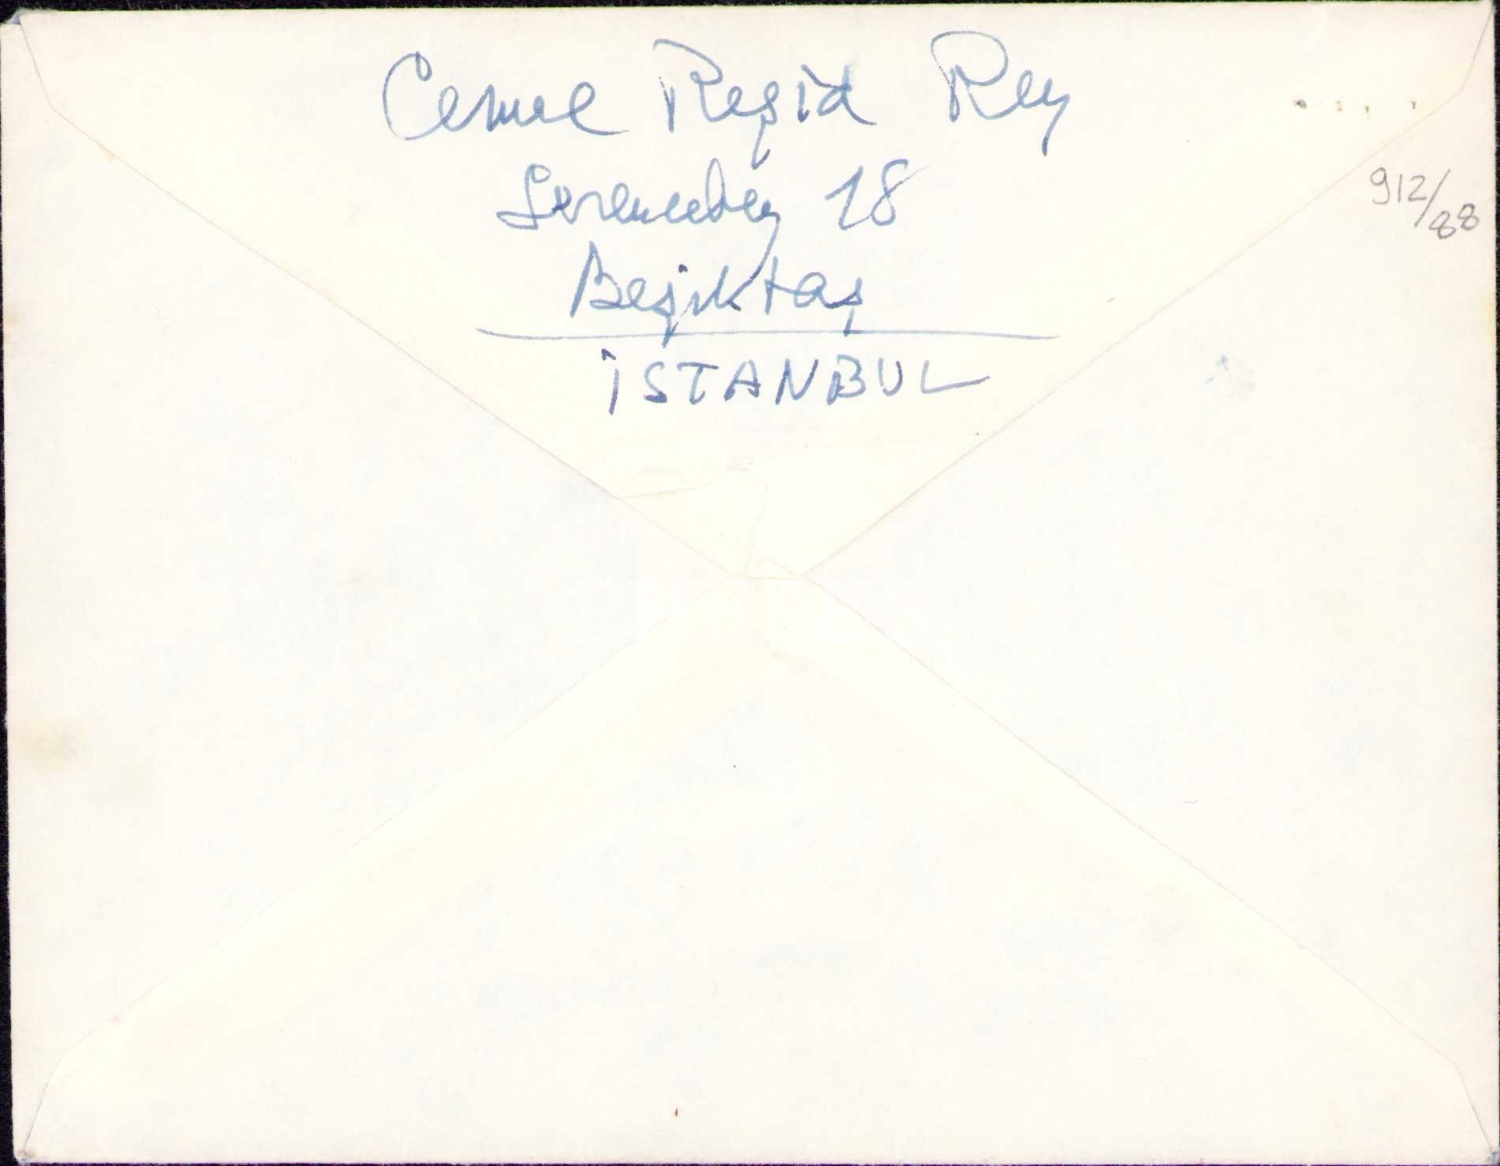 Cemal Reşid Rey
Serencebey 18
Beşiktaş
İSTANBUL
912/88